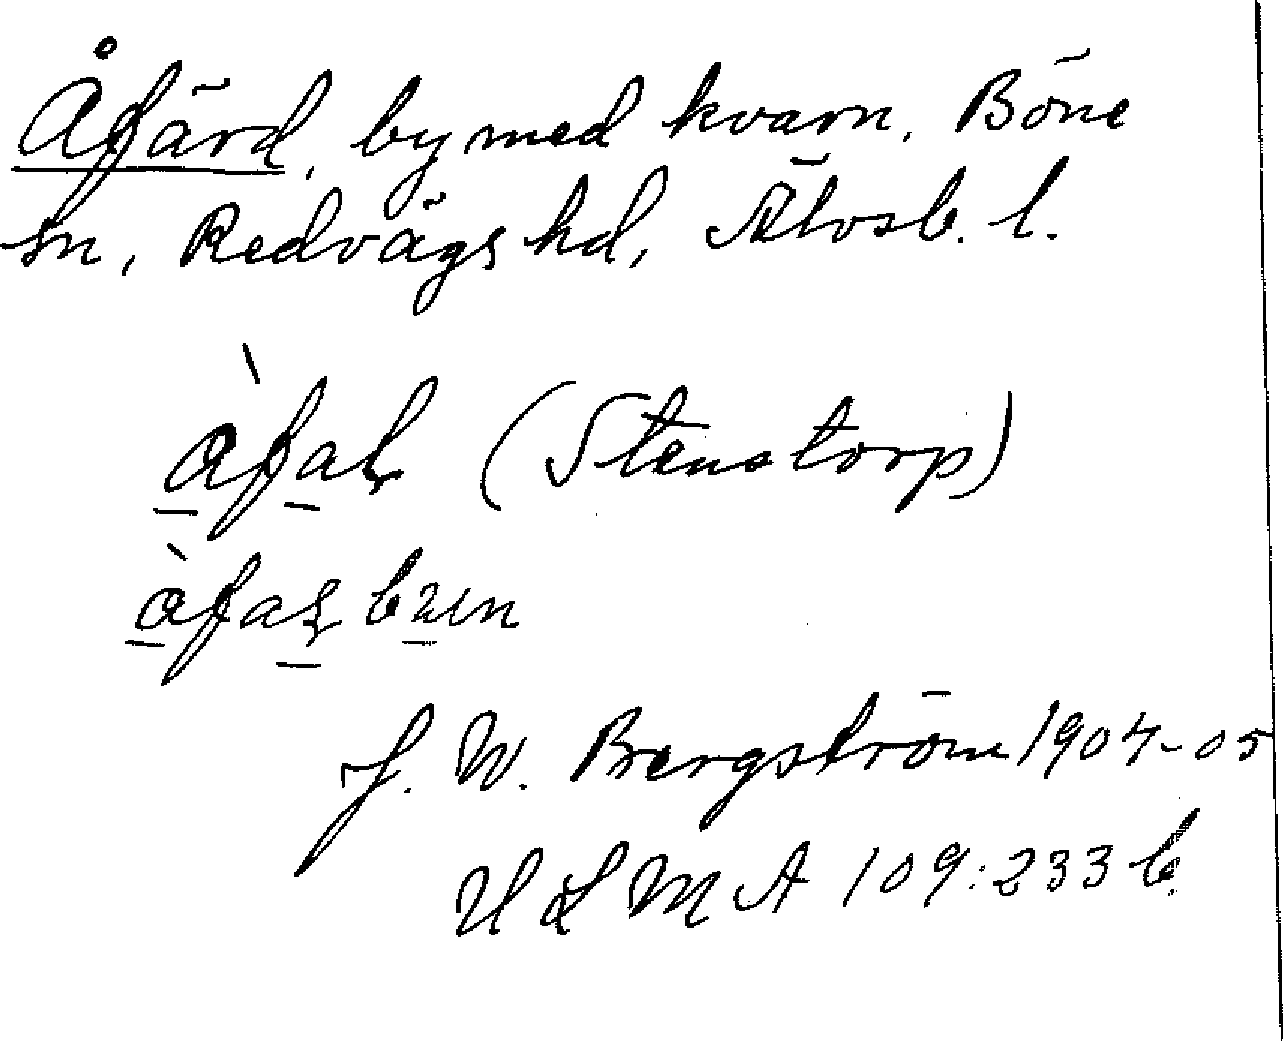 Åfärd, by med kvarn, Böne
sn, Redvägs hd, Älvsb. l.
àfaḷ (Stenstorp)
àfaʂ bɯn
J. W. Bergström 1904-05
ULMA 109:233 b.